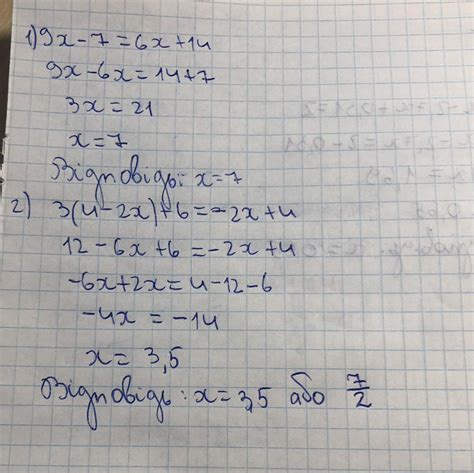 1) 9x - 7 = 6x + 14
9x - 6x = 14 + 7
3x = 21
x = 7
Відповідь: x = 7
2) 3(4 - 2x) + 6 = -2x + 4
12 - 6x + 6 = -2x + 4
-6x + 2x = 4 - 12 - 6
-4x = -14
x = 3,5
Відповідь: x = 3,5 або 7/2